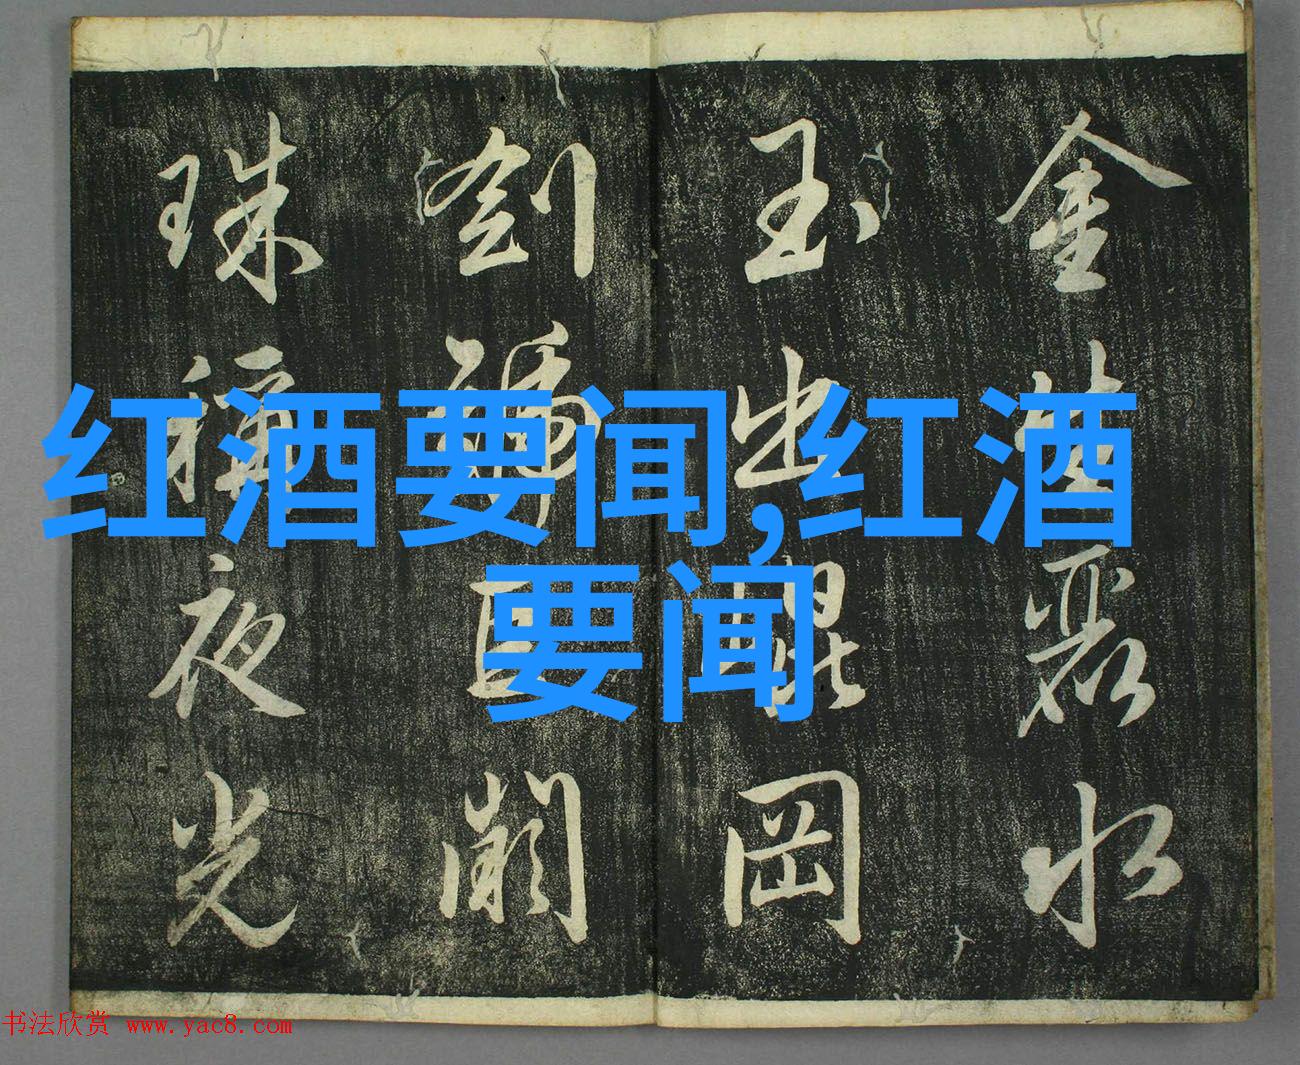 金生麗水
玉出崐岡
劍號巨闕
珠稱夜光
红酒要闻,红酒
要闻
书法欣赏 www.yac8.com